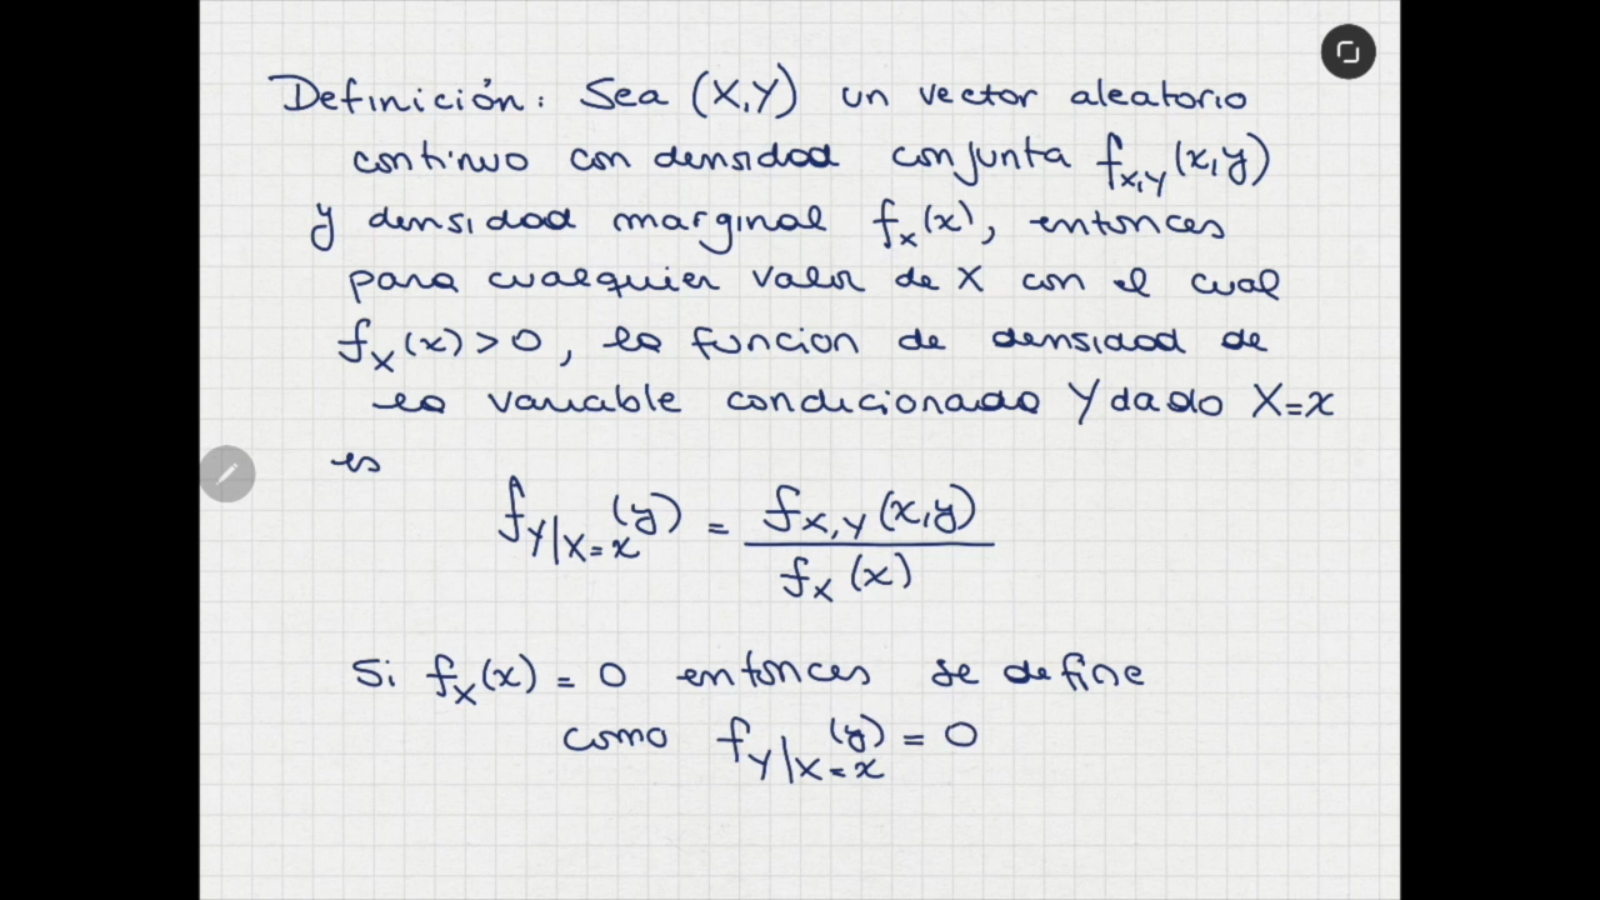 Definición: Sea (X,Y) un vector aleatorio
continuo con densidad conjunta f_{X,Y}(x,y)
y densidad marginal f_X(x), entonces
para cualquier valor de X con el cual
f_X(x) > 0, la funcion de densidad de
la variable condicionada Y dado X=x
es
f_{Y|X=x}(y) = \frac{f_{X,Y}(x,y)}{f_X(x)}
Si f_X(x) = 0 entonces se define
como f_{Y|X=x}(y) = 0